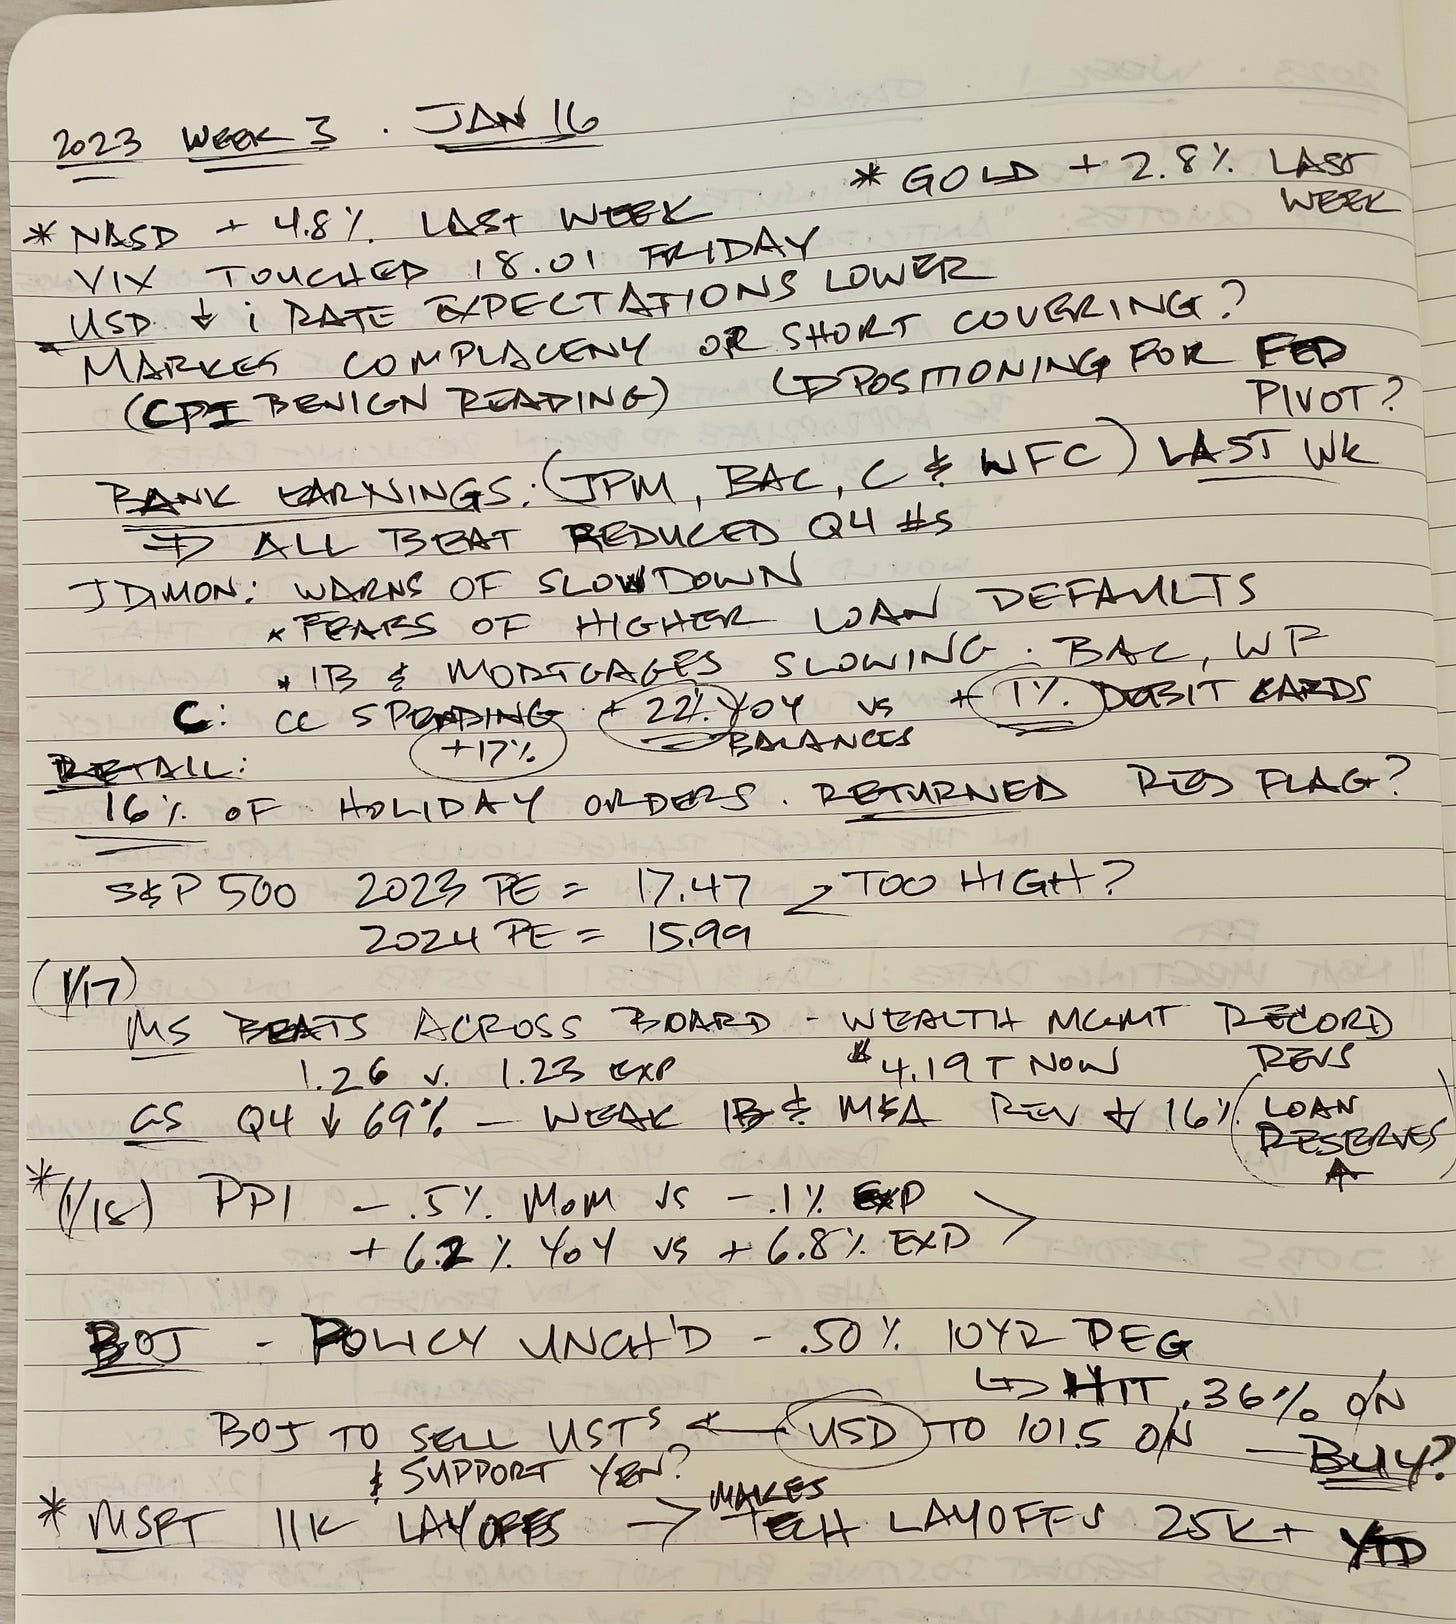 2023 WEEK 3 . JAN 16
* GOLD + 2.8% LAST
WEEK
* NASD + 4.8% LAST WEEK
VIX TOUCHED 18.01 FRIDAY
USD ↓ i RATE EXPECTATIONS LOWER
MARKES COMPLACENY OR SHORT COVERING?
(CPI BENIGN READING) ↳ POSITIONING FOR FED
PIVOT?
BANK EARNINGS: (JPM, BAC, C & WFC) LAST WK
⇒ ALL BEAT REDUCED Q4 #S
J DIMON: WARNS OF SLOWDOWN
* FEARS OF HIGHER LOAN DEFAULTS
* IB & MORTGAGES SLOWING . BAC, WF
C: CC SPENDING + 22% YOY vs + 1% DEBIT CARDS
+17% BALANCES
RETAIL:
16% OF HOLIDAY ORDERS . RETURNED RED FLAG?
S&P 500 2023 PE = 17.47 TOO HIGH?
2024 PE = 15.99
(1/17)
MS BEATS ACROSS BOARD - WEALTH MGMT RECORD
1.26 v. 1.23 EXP $4.19T NOW REVS
GS Q4 ↓ 69% - WEAK IB & M&A REV ↓ 16% (LOAN
RESERVES ↑)
* (1/18) PPI - .5% MoM vs - .1% EXP
+ 6.2% YoY vs + 6.8% EXP >
BOJ - POLICY UNCH'D - .50% 10YR PEG
↳ HIT .36% O/N
BOJ TO SELL USTS ← USD TO 101.5 O/N - BUY?
& SUPPORT YEN?
* MSFT 11K LAYOFFS → MAKES
TECH LAYOFFS 25K+ YTD